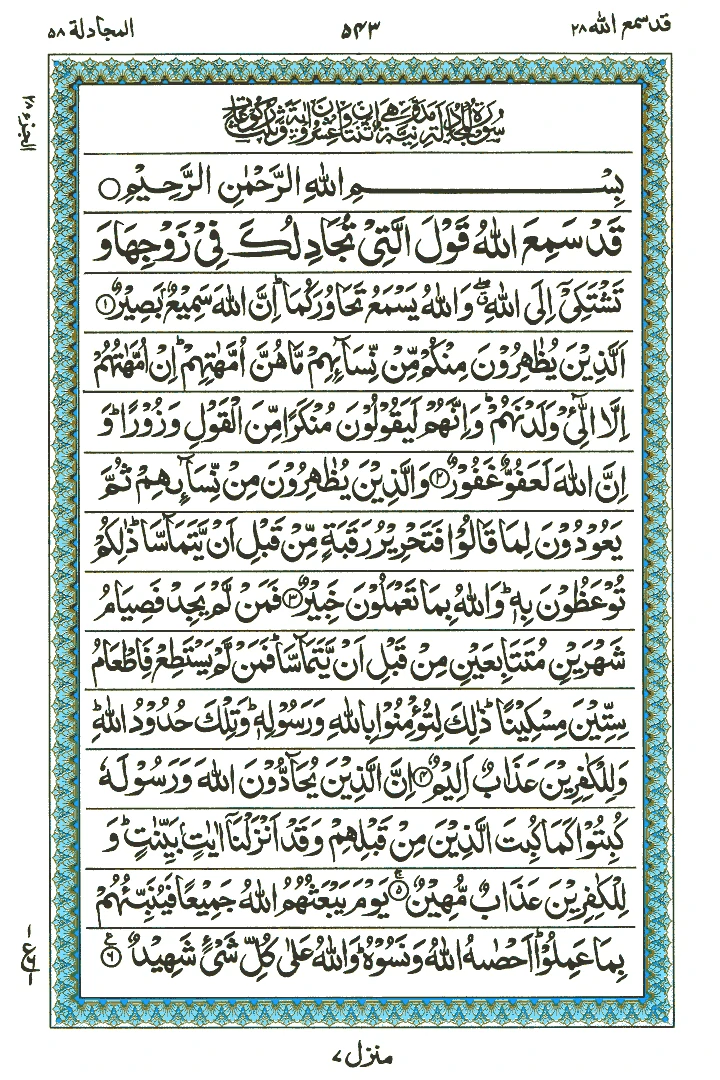 قد سمع الله ۲۸ ۵۴۳ المجادلة ۵۸
الجزء ۲۸
سُوْرَةُ الْمُجَادَلَةِ مَدَنِيَّةٌ وَّهِيَ اثْنَتَانِ وَعِشْرُوْنَ اٰيَةً وَّثَلٰثُ رُكُوْعَاتٍ
بِسْمِ اللهِ الرَّحْمٰنِ الرَّحِيْمِ ○
قَدْ سَمِعَ اللهُ قَوْلَ الَّتِيْ تُجَادِلُكَ فِيْ زَوْجِهَا وَ
تَشْتَكِيْٓ اِلَى اللهِ ۖ وَاللهُ يَسْمَعُ تَحَاوُرَكُمَا ؕ اِنَّ اللهَ سَمِيْعٌۢ بَصِيْرٌ ۱
اَلَّذِيْنَ يُظٰهِرُوْنَ مِنْكُمْ مِّنْ نِّسَآئِهِمْ مَّا هُنَّ اُمَّهٰتِهِمْ ؕ اِنْ اُمَّهٰتُهُمْ
اِلَّا الّٰٓئِيْ وَلَدْنَهُمْ ؕ وَاِنَّهُمْ لَيَقُوْلُوْنَ مُنْكَرًا مِّنَ الْقَوْلِ وَزُوْرًا ؕ وَ
اِنَّ اللهَ لَعَفُوٌّ غَفُوْرٌ ۲ وَالَّذِيْنَ يُظٰهِرُوْنَ مِنْ نِّسَآئِهِمْ ثُمَّ
يَعُوْدُوْنَ لِمَا قَالُوْا فَتَحْرِيْرُ رَقَبَةٍ مِّنْ قَبْلِ اَنْ يَّتَمَآسَّا ؕ ذٰلِكُمْ
تُوْعَظُوْنَ بِهٖ ؕ وَاللهُ بِمَا تَعْمَلُوْنَ خَبِيْرٌ ۳ فَمَنْ لَّمْ يَجِدْ فَصِيَامُ
شَهْرَيْنِ مُتَتَابِعَيْنِ مِنْ قَبْلِ اَنْ يَّتَمَآسَّا ۚ فَمَنْ لَّمْ يَسْتَطِعْ فَاِطْعَامُ
سِتِّيْنَ مِسْكِيْنًا ؕ ذٰلِكَ لِتُؤْمِنُوْا بِاللهِ وَرَسُوْلِهٖ ؕ وَتِلْكَ حُدُوْدُ اللهِ ؕ
وَلِلْكٰفِرِيْنَ عَذَابٌ اَلِيْمٌ ۴ اِنَّ الَّذِيْنَ يُحَآدُّوْنَ اللهَ وَرَسُوْلَهٗ
كُبِتُوْا كَمَا كُبِتَ الَّذِيْنَ مِنْ قَبْلِهِمْ وَقَدْ اَنْزَلْنَآ اٰيٰتٍۭ بَيِّنٰتٍ ؕ وَ
لِلْكٰفِرِيْنَ عَذَابٌ مُّهِيْنٌ ۵ يَوْمَ يَبْعَثُهُمُ اللهُ جَمِيْعًا فَيُنَبِّئُهُمْ
بِمَا عَمِلُوْا ؕ اَحْصٰىهُ اللهُ وَنَسُوْهُ ؕ وَاللهُ عَلٰى كُلِّ شَيْءٍ شَهِيْدٌ ۶
منزل ۷